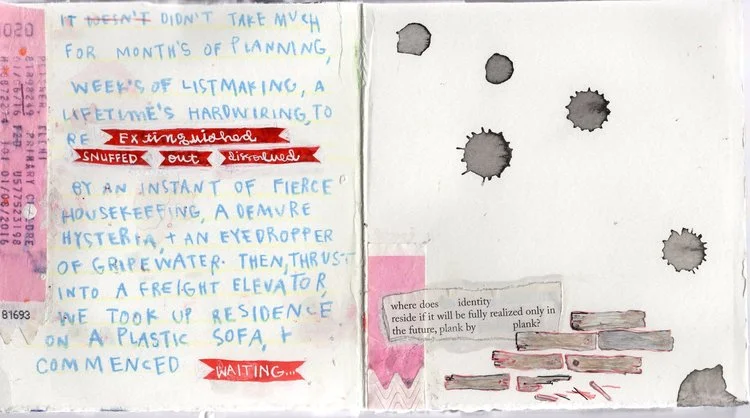 IT DOESN'T DIDN'T TAKE MUCH
FOR MONTH'S OF PLANNING,
WEEK'S OF LISTMAKING, A
LIFETIME'S HARDWIRING, TO
RE Extinguished
SNUFFED out dissolved
BY AN INSTANT OF FIERCE
HOUSEKEEPING, A DEMURE
HYSTERIA, + AN EYEDROPPER
OF GRIPEWATER. THEN, THRUST
INTO A FREIGHT ELEVATOR,
WE TOOK UP RESIDENCE
ON A PLASTIC SOFA, +
COMMENCED WAITING...
U577523198
01/08/2016
B1693
where does identity
reside if it will be fully realized only in
the future, plank by plank?